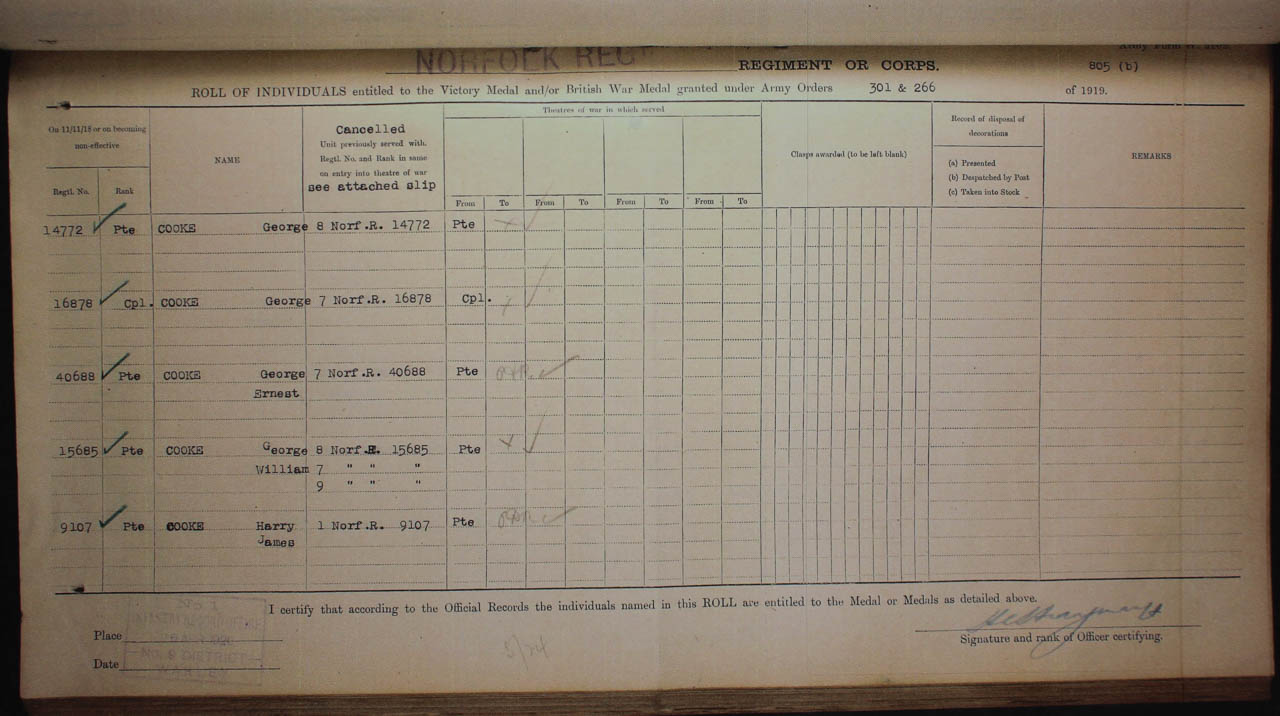 NORFOLK REGT
REGIMENT OR CORPS.
805 (b)
ROLL OF INDIVIDUALS entitled to the Victory Medal and/or British War Medal granted under Army Orders 301 & 266 of 1919.
On 11/11/18 or on becoming non-effective
Regtl. No.
Rank
NAME
Cancelled
Unit previously served with.
Regtl. No. and Rank in same
on entry into theatre of war
see attached slip
Theatres of war in which served
From To From To From To From To
Clasps awarded (to be left blank)
Record of disposal of
decorations
(a) Presented
(b) Despatched by Post
(c) Taken into Stock
REMARKS
14772 Pte COOKE George 8 Norf.R. 14772 Pte
16878 Cpl. COOKE George 7 Norf.R. 16878 Cpl.
40688 Pte COOKE George 7 Norf.R. 40688 Pte
Ernest
15685 Pte COOKE George 8 Norf.R. 15685 Pte
William 7 " " "
9 " " "
9107 Pte COOKE Harry 1 Norf.R. 9107 Pte
James
I certify that according to the Official Records the individuals named in this ROLL are entitled to the Medal or Medals as detailed above.
No. 1
No. 9 DISTRICT
WARLEY
Place
Date
5/24
Signature and rank of Officer certifying.